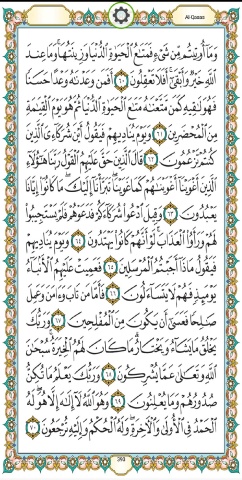 Al Qasas
وَمَا أُوتِيتُم مِّن شَىْءٍ فَمَتَٰعُ ٱلْحَيَوٰةِ ٱلدُّنْيَا وَزِينَتُهَا ۚ وَمَا عِندَ
ٱللَّهِ خَيْرٌ وَأَبْقَىٰٓ ۚ أَفَلَا تَعْقِلُونَ ٦٠ أَفَمَن وَعَدْنَٰهُ وَعْدًا حَسَنًا
فَهُوَ لَٰقِيهِ كَمَن مَّتَّعْنَٰهُ مَتَٰعَ ٱلْحَيَوٰةِ ٱلدُّنْيَا ثُمَّ هُوَ يَوْمَ ٱلْقِيَٰمَةِ
مِنَ ٱلْمُحْضَرِينَ ٦١ وَيَوْمَ يُنَادِيهِمْ فَيَقُولُ أَيْنَ شُرَكَآءِىَ ٱلَّذِينَ
كُنتُمْ تَزْعُمُونَ ٦٢ قَالَ ٱلَّذِينَ حَقَّ عَلَيْهِمُ ٱلْقَوْلُ رَبَّنَا هَٰٓؤُلَآءِ
ٱلَّذِينَ أَغْوَيْنَآ أَغْوَيْنَٰهُمْ كَمَا غَوَيْنَا ۖ تَبَرَّأْنَآ إِلَيْكَ ۖ مَا كَانُوٓا۟ إِيَّانَا
يَعْبُدُونَ ٦٣ وَقِيلَ ٱدْعُوا۟ شُرَكَآءَكُمْ فَدَعَوْهُمْ فَلَمْ يَسْتَجِيبُوا۟
لَهُمْ وَرَأَوُا۟ ٱلْعَذَابَ ۚ لَوْ أَنَّهُمْ كَانُوا۟ يَهْتَدُونَ ٦٤ وَيَوْمَ يُنَادِيهِمْ
فَيَقُولُ مَاذَآ أَجَبْتُمُ ٱلْمُرْسَلِينَ ٦٥ فَعَمِيَتْ عَلَيْهِمُ ٱلْأَنۢبَآءُ
يَوْمَئِذٍ فَهُمْ لَا يَتَسَآءَلُونَ ٦٦ فَأَمَّا مَن تَابَ وَءَامَنَ وَعَمِلَ
صَٰلِحًا فَعَسَىٰٓ أَن يَكُونَ مِنَ ٱلْمُفْلِحِينَ ٦٧ وَرَبُّكَ
يَخْلُقُ مَا يَشَآءُ وَيَخْتَارُ ۗ مَا كَانَ لَهُمُ ٱلْخِيَرَةُ ۚ سُبْحَٰنَ
ٱللَّهِ وَتَعَٰلَىٰ عَمَّا يُشْرِكُونَ ٦٨ وَرَبُّكَ يَعْلَمُ مَا تُكِنُّ
صُدُورُهُمْ وَمَا يُعْلِنُونَ ٦٩ وَهُوَ ٱللَّهُ لَآ إِلَٰهَ إِلَّا هُوَ ۖ لَهُ
ٱلْحَمْدُ فِى ٱلْأُولَىٰ وَٱلْءَاخِرَةِ ۖ وَلَهُ ٱلْحُكْمُ وَإِلَيْهِ تُرْجَعُونَ ٧٠
393